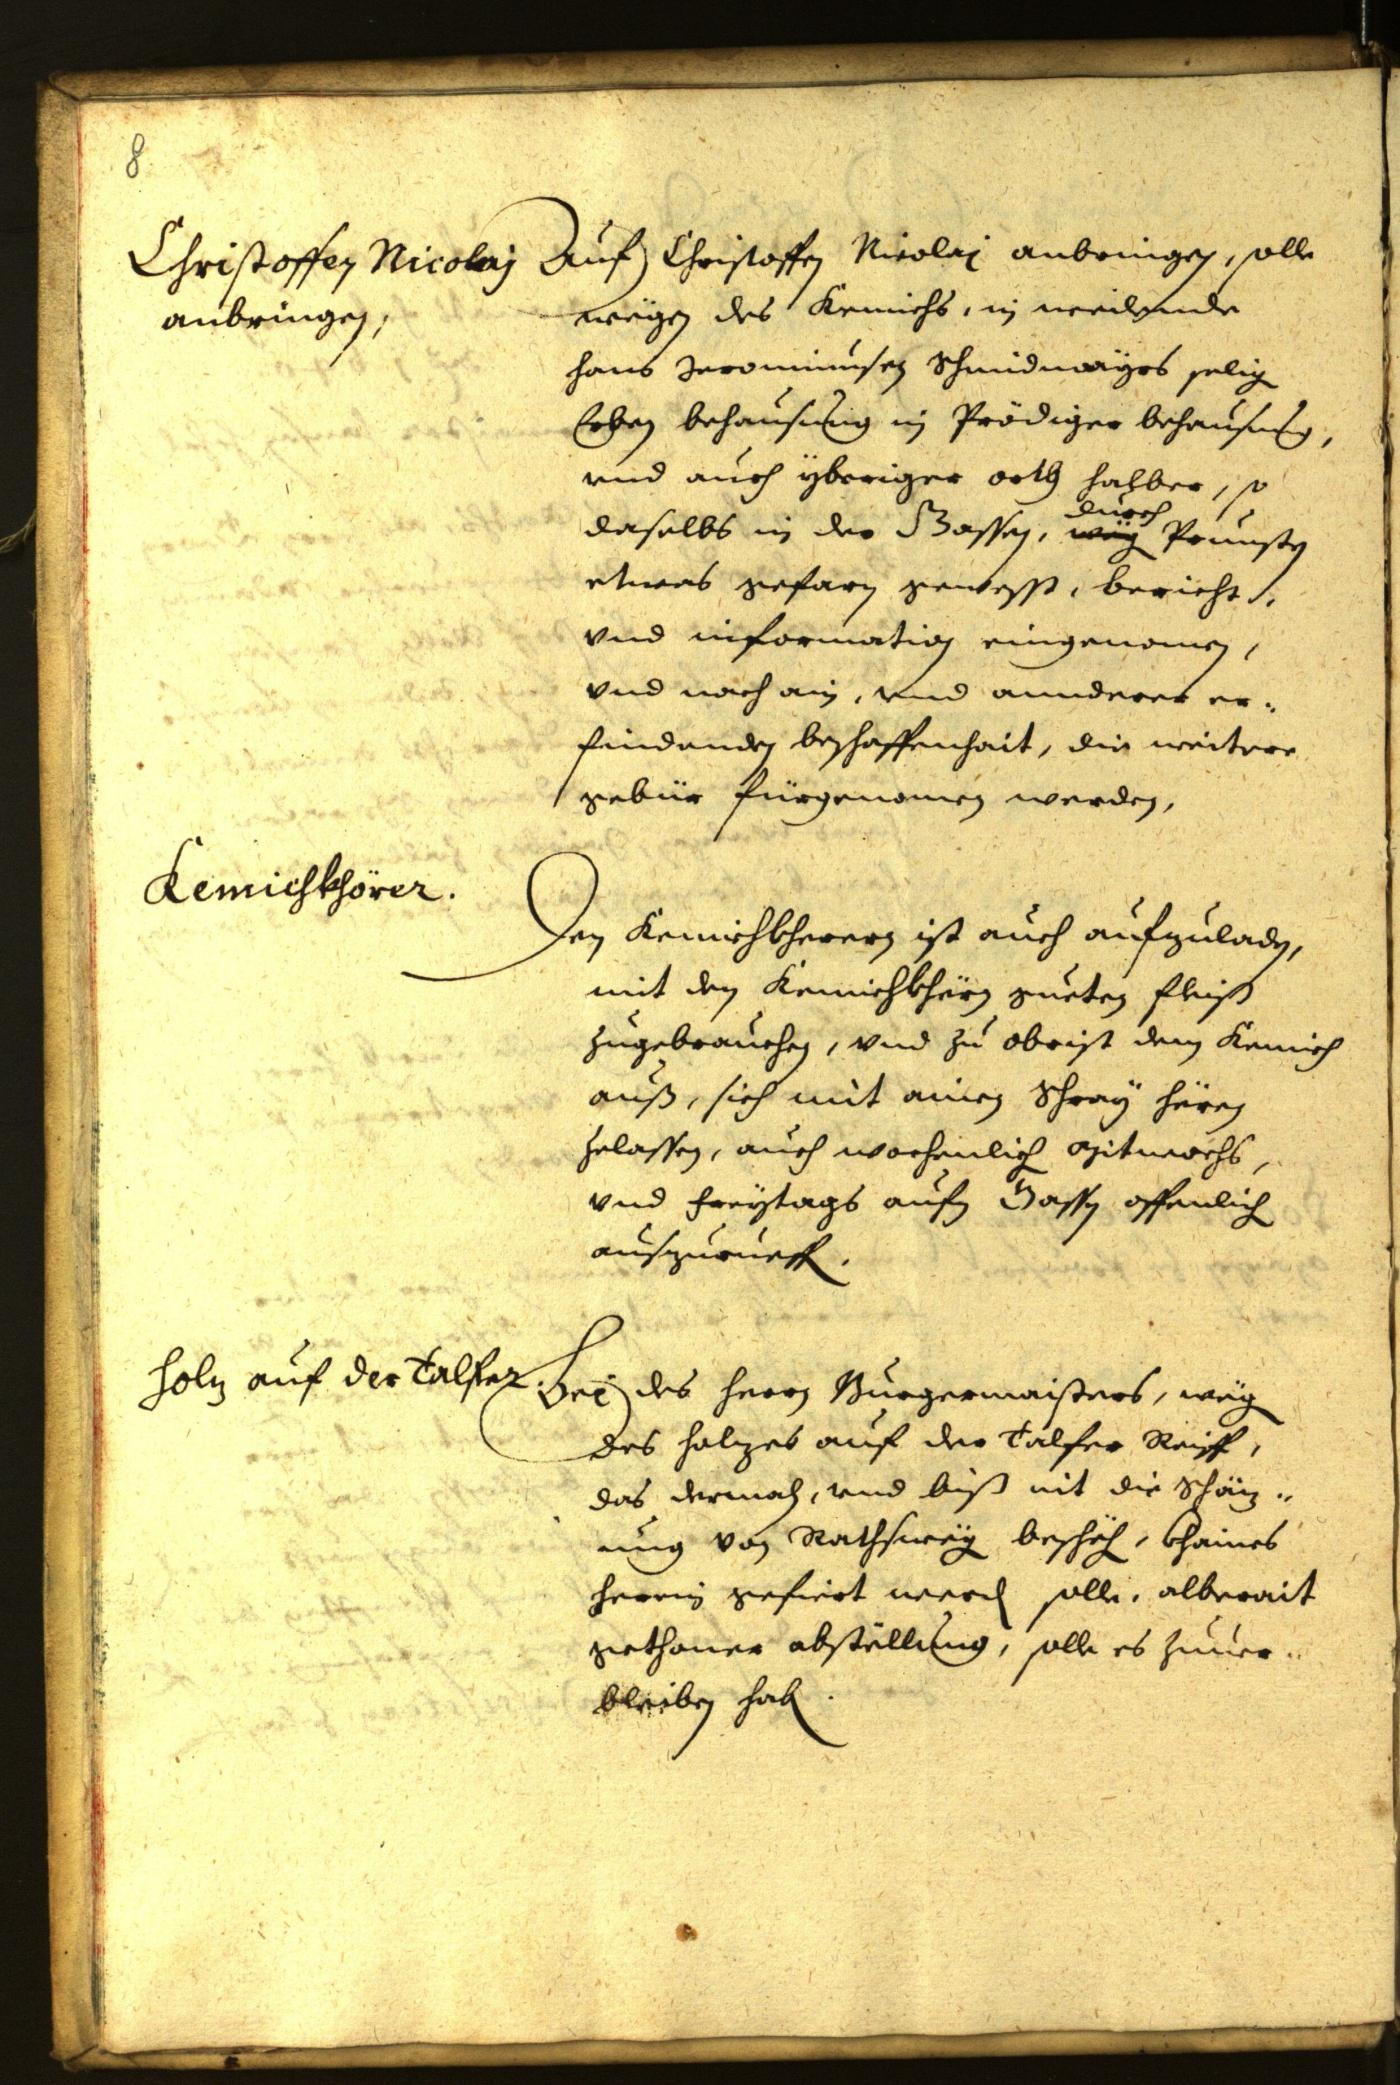 8
Christoffen Nicolaj
anbringen,
Auf Christoffen Nicolaj anbringen, solle
wegen des Kemichs, in weilende
Hans Jeronimusen Schmidmayrs selig
Erben behausung in Prödiger behausung,
vnd auch ÿberiger orth halber, so
daselbs in der Gassen, durch
weg Prunsten
etwas gefarn gewesst, bericht,
vnd information eingenomen,
vnd nach ain, vnd annderer er-
findenden beschaffenhait, die weitere
gebür fürgenomen werden,
Kemichkhörer.
Den Kemichkherern ist auch aufzuladen,
mit den Kemichkhern gueten fleiß
zugebrauchen, vnd zu obrist dem Kemich
auß, sich mit ainen Schray hëren
zelassen, auch wochenlich Mitwochs,
vnd Freÿtags aufn Gassen offenlich
auszurueffen.
Holz auf der Talfer.
Bei des herrn Burgermaisters, weg
des holzes auf der Talfer Reiff,
das dermaln, vnd biß nit die Schäz-
ung von Rathsweg beschech, khaines
herein gefiert werd solle, alberait
gethaner abstëllung, solle es zuuer-
bleiben haben.